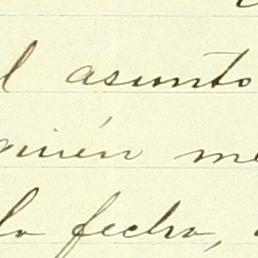 l asunto
quién me
la fecha,